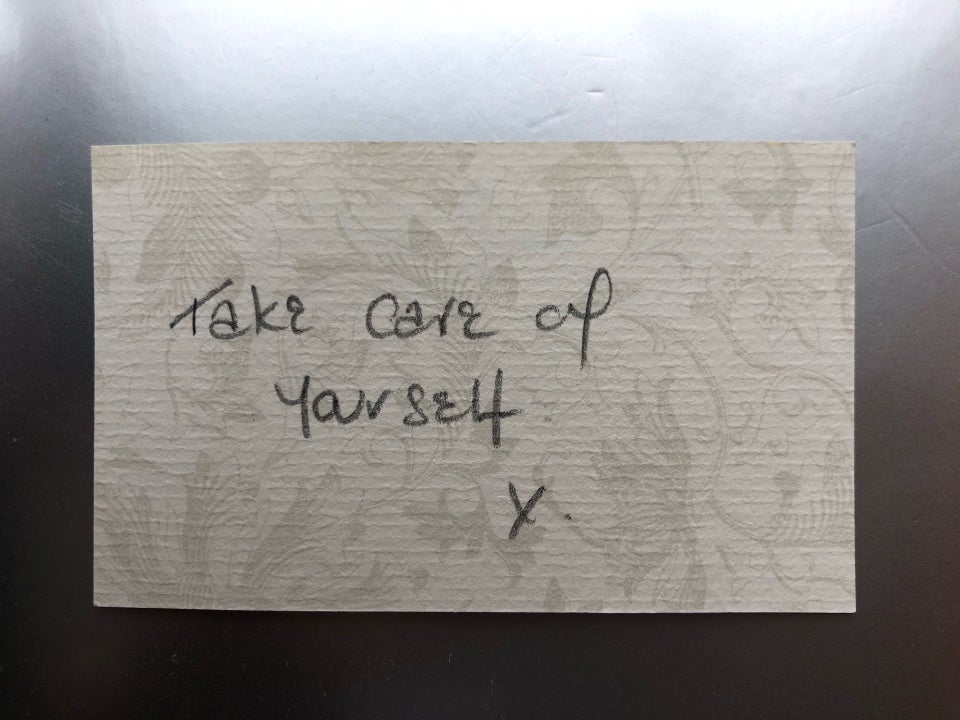 Take care of
yourself.
X.